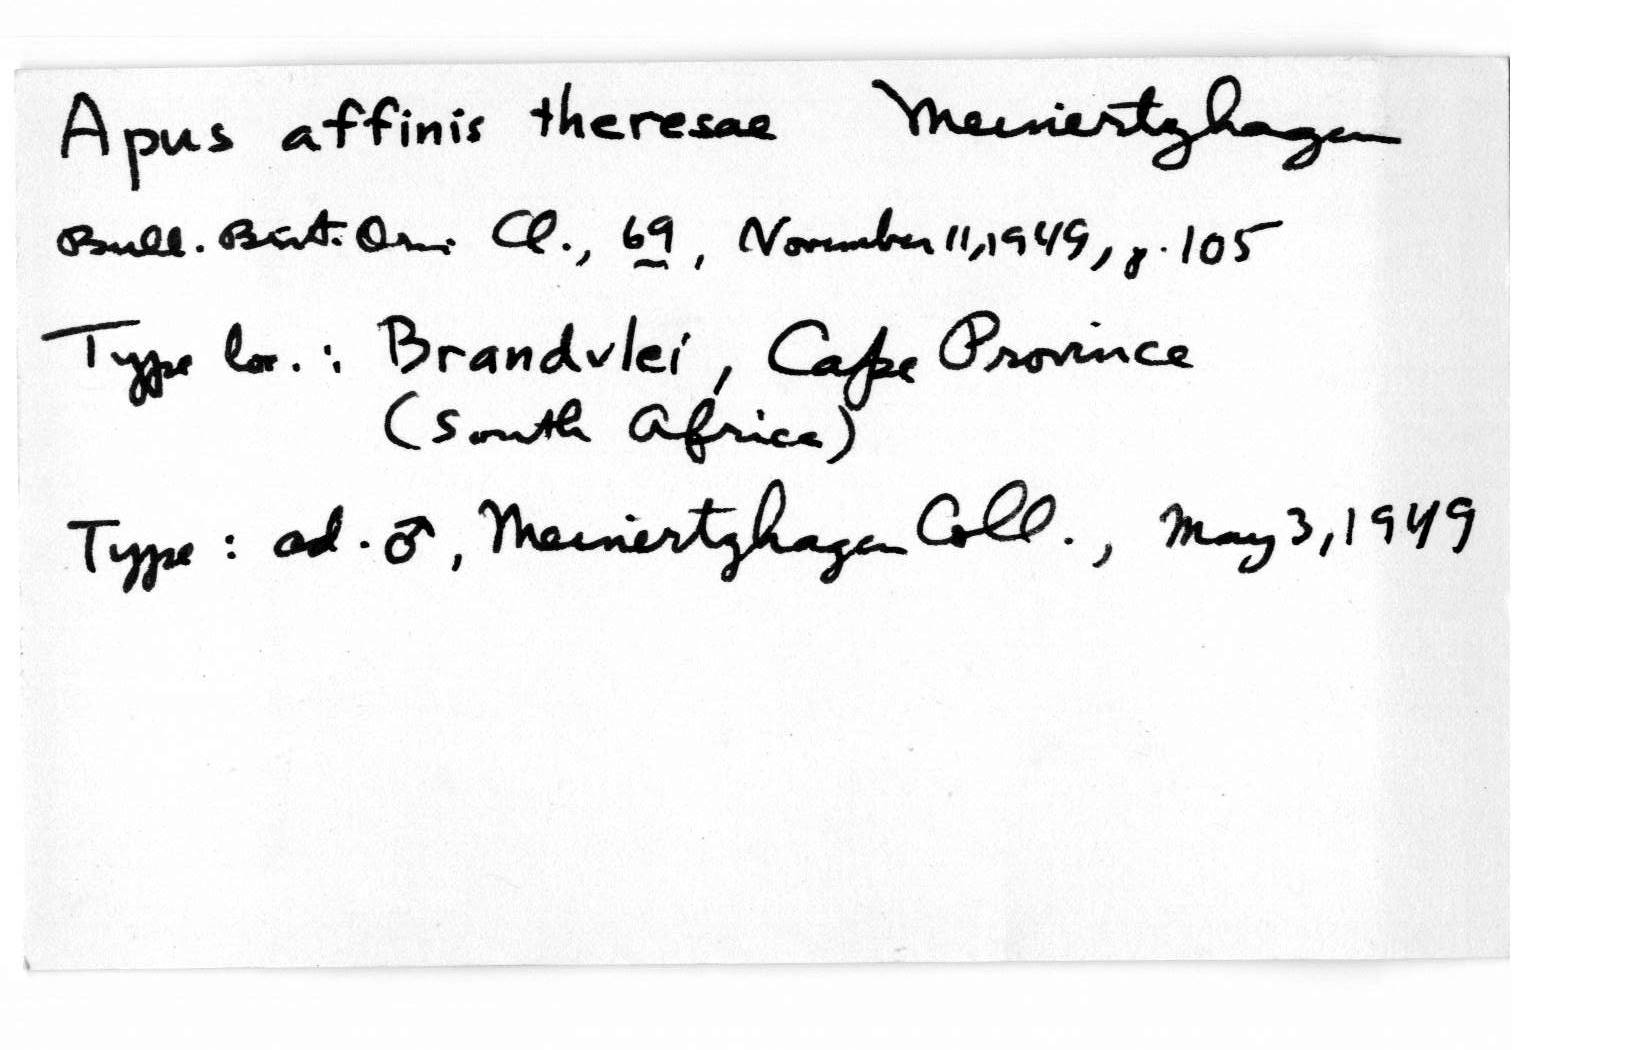 Apus affinis theresae Meinertzhagen
Bull. Brit. Orn. Cl., 69, November 11, 1949, p. 105
Type loc.: Brandvlei, Cape Province
(South Africa)
Type: ad. ♂, Meinertzhagen Coll., May 3, 1949